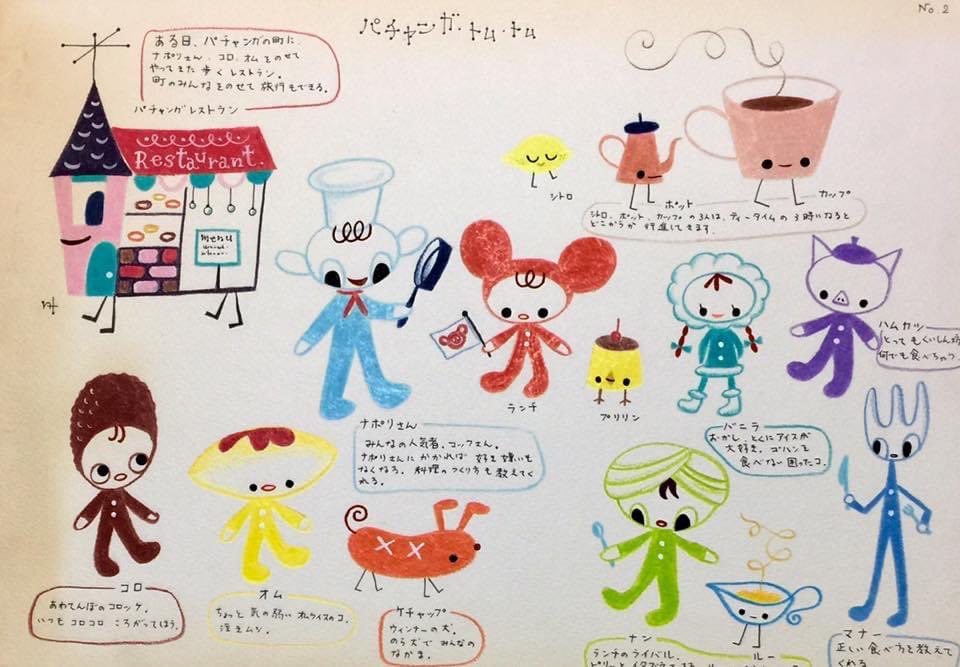 No. 2
パチャンガ・トム・トム
ある日、パチャンガの町に、
ナポリさん、コロ、オム をのせて
やってきた 歩く レストラン。
町のみんなをのせて 旅行もできる。
パチャングレストラン
Restaurant.
シトロ
ポット
カップ
シトロ、ポット、カップ の3人は、ティータイムの 3時になると
どこからか 行進してきます。
ランチ
プリリン
ハムカツ
とっても くいしん坊
何でも食べちゃう。
ナポリさん
みんなの人気者、コックさん。
ナポリさんに かかれば 好き嫌いも
なくなる。 料理のつくり方も 教えてく
れる。
バニラ
おかし、とくにアイスが
大好き。 ゴハンを
食べない 困ったコ。
コロ
あわてんぼのコロッケ。
いつも コロコロ ころがってばう。
オム
ちょっと 気の弱い オムライスのコ。
泣きムシ。
ケチャップ
ウィンナーの犬。
のら犬で みんなの
なかま。
ナン
ランチのライバル。
ルー
マナー
正しい 食べ方を教えて
くれる